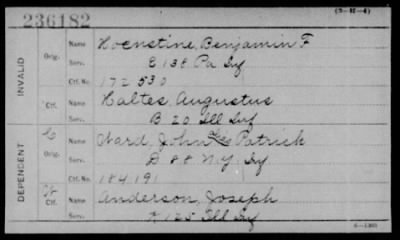 (3-H-4)
236182
INVALID
Orig. Name Hoenstine, Benjamin F
Serv. E 138 Pa Inf
Ctf. No. 172530
Ctf. Name Haltes, Augustus
Serv. B 20 Ill Inf
DEPENDENT
C Orig. Name Ward, John Patrick
Serv. D 88 N.Y. Inf
Ctf. No. 184191
W Ctf. Name Anderson, Joseph
Serv. K 125 Ill Inf